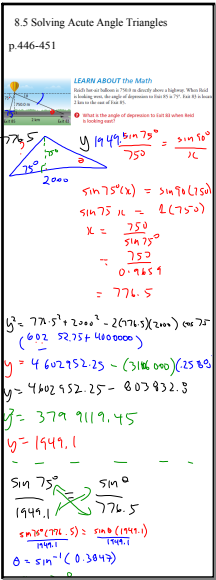 8.5 Solving Acute Angle Triangles
p.446-451
LEARN ABOUT the Math
Reid's hot-air balloon is 750.0 m directly above a highway. When Reid
is looking west, the angle of depression to Exit 85 is 75°. Exit 83 is located
2 km to the east of Exit 85.
What is the angle of depression to Exit 83 when Reid
is looking east?
776.5
750
75°
2000
θ
y 1949.1
sin 75° / 750 = sin 90° / x
sin 75°(x) = sin 90(750)
sin 75 x = 1(750)
x = 750 / sin 75°
= 750 / 0.9659
= 776.5
y² = 776.5² + 2000² - 2(776.5)(2000) cos 75
(602 952.25 + 4000000)
y = 4 602952.25 - (3106 000)(.2588)
y = 4602952.25 - 803832.8
y² = 379 9119.45
y = 1949.1
sin 75° / 1949.1 = sin θ / 776.5
sin 75° (776.5) / 1949.1 = sin θ (1949.1) / 1949.1
θ = sin⁻¹ (0.3847)